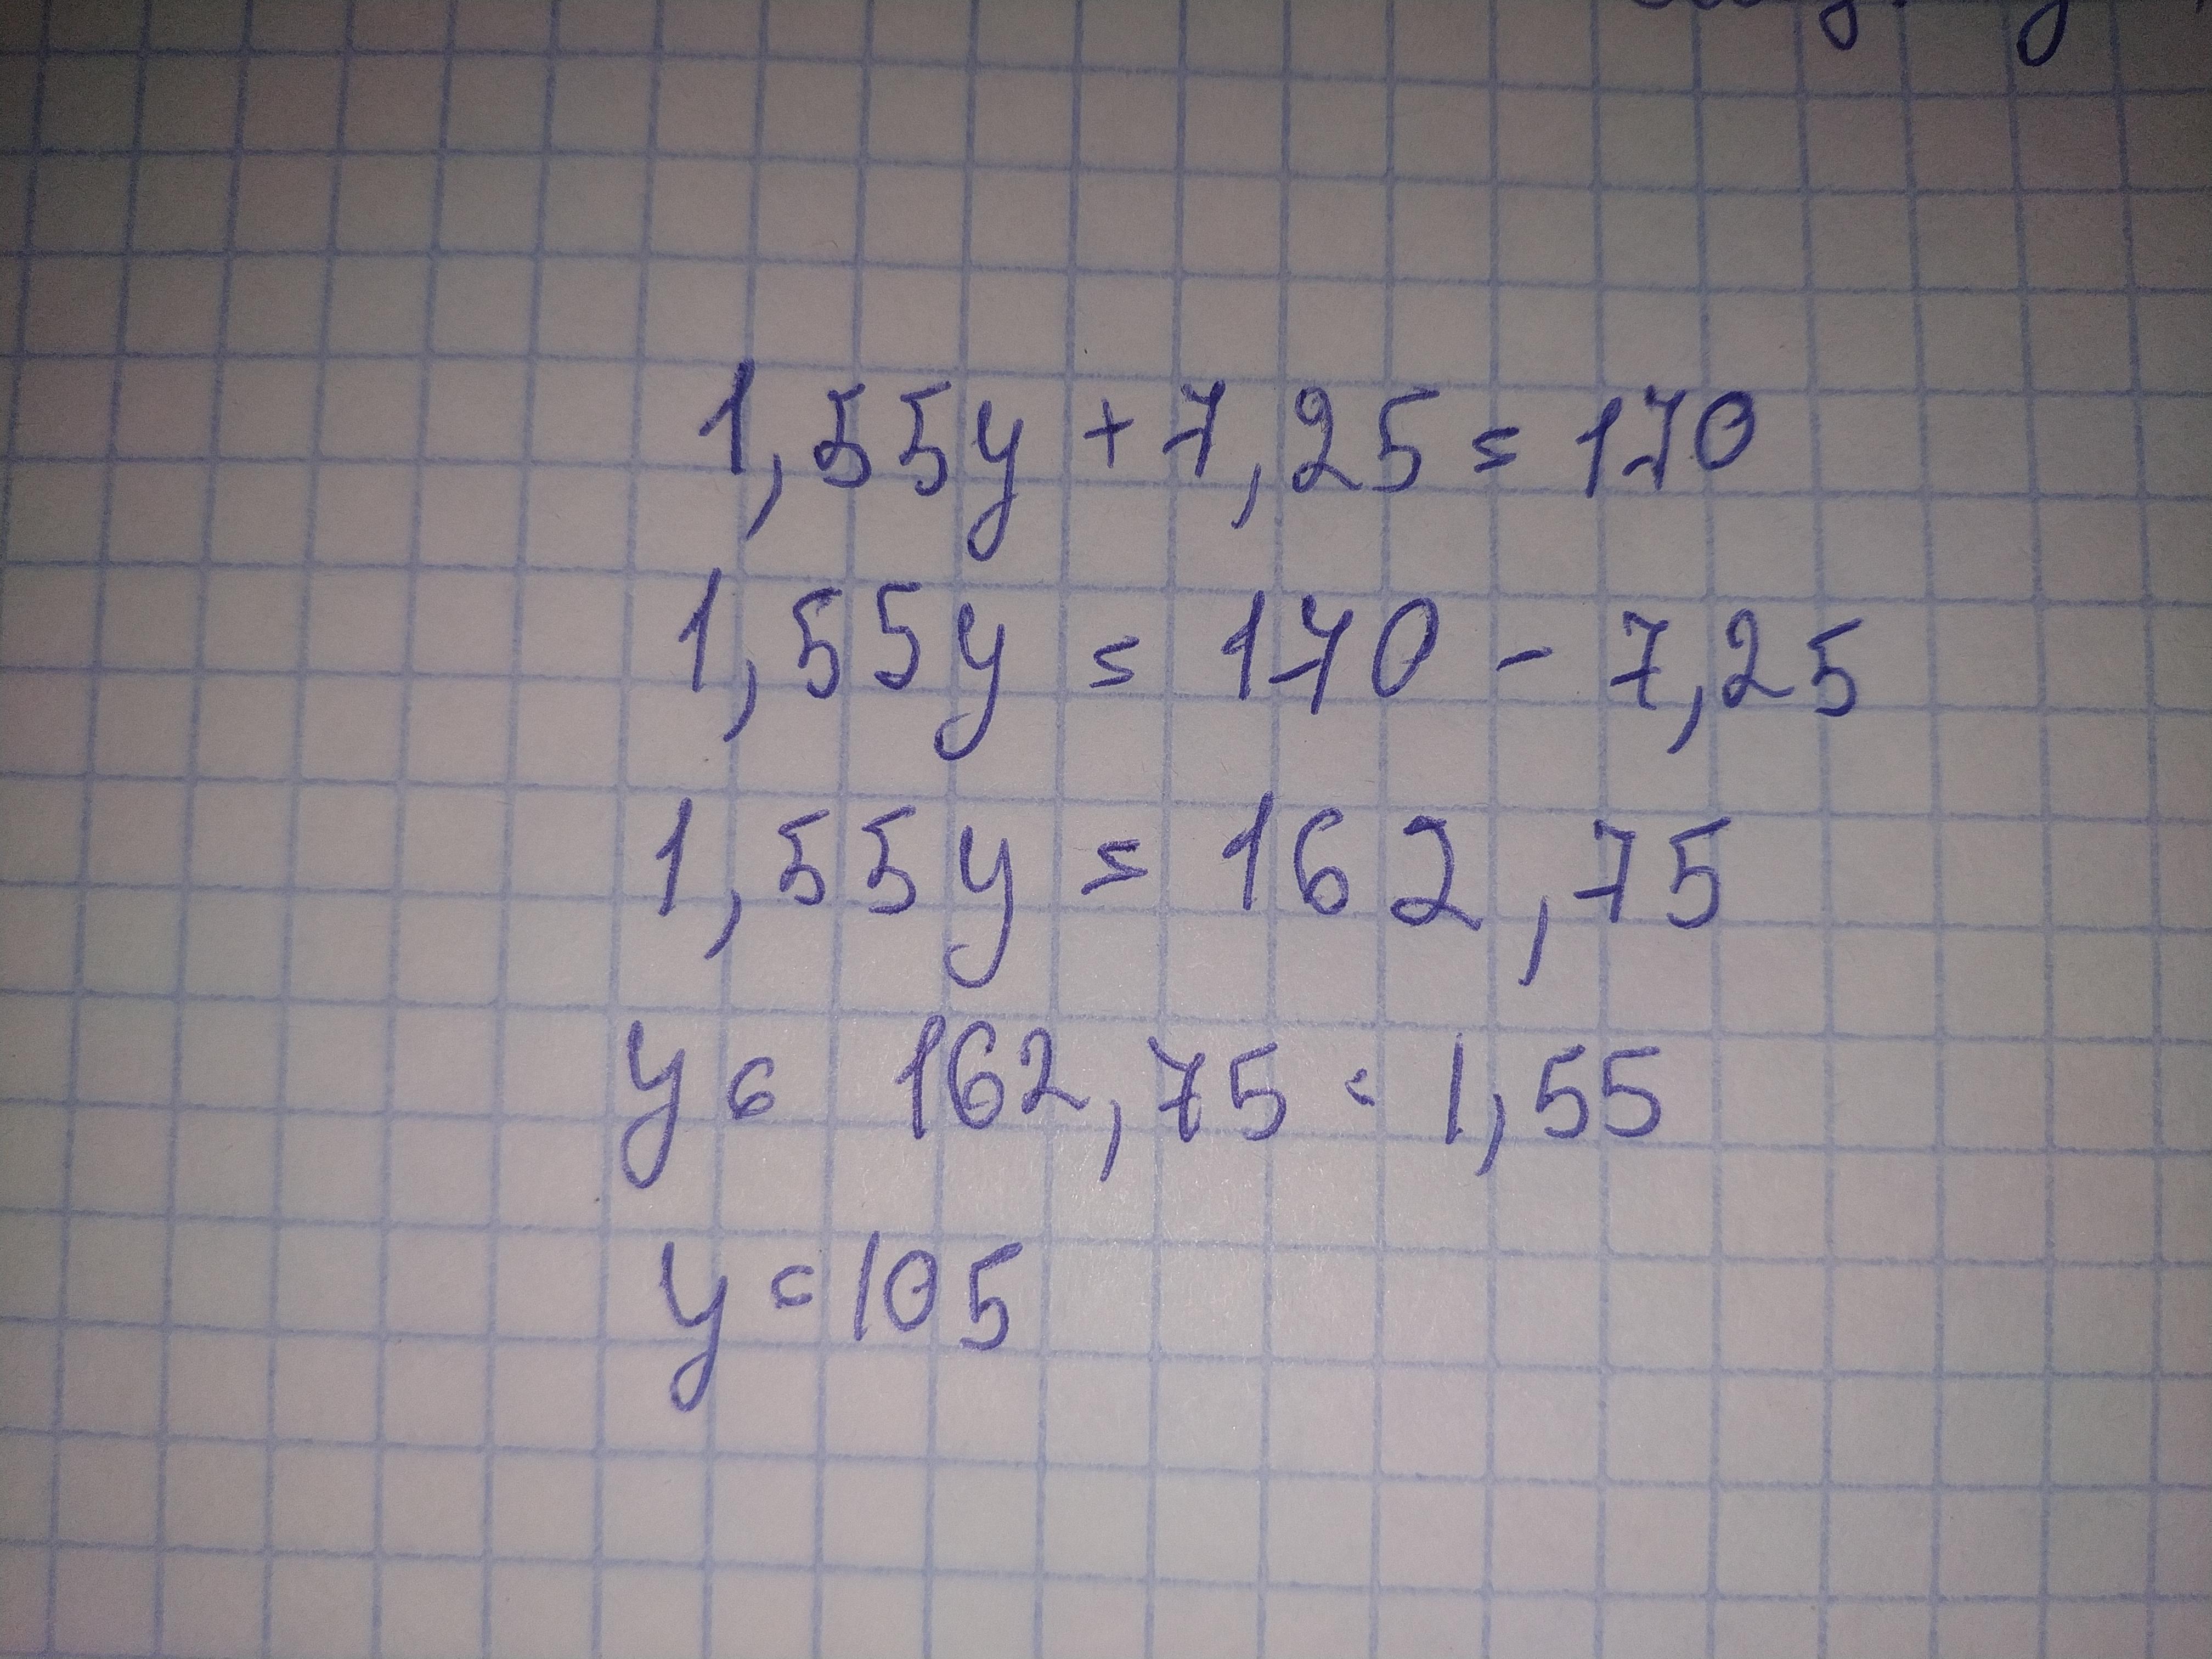 1,55y + 7,25 = 170
1,55y = 170 - 7,25
1,55y = 162,75
y = 162,75 : 1,55
y = 105